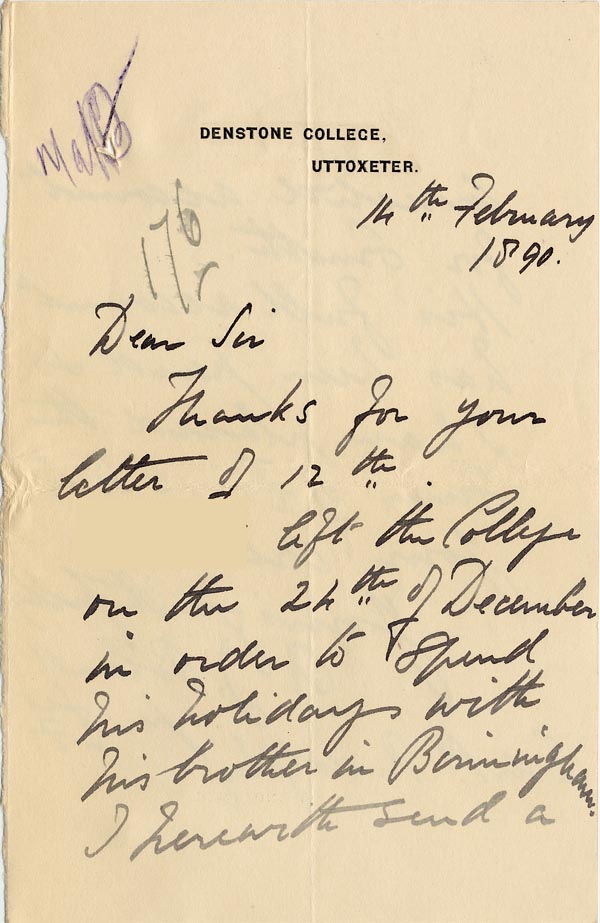 DENSTONE COLLEGE,
UTTOXETER.
14th February
1890.
Dear Sir
Thanks for your
letter of 12th.
left the College
on the 24th of December
in order to spend
his holidays with
his brother in Birmingham.
I herewith send a